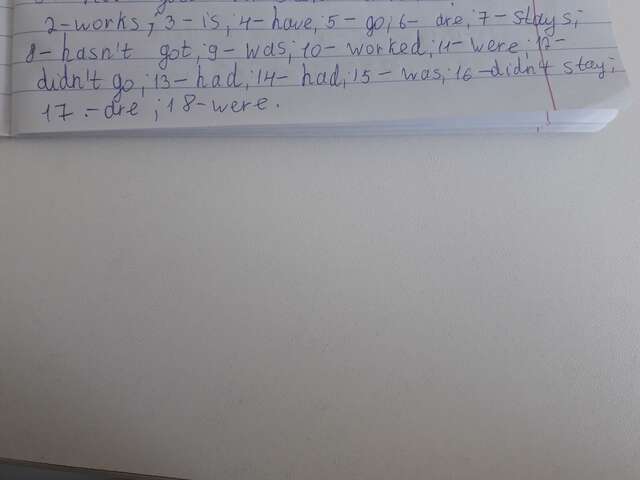 2-works; 3-is; 4-have, 5-go; 6-are; 7-stays;
8-hasn't got; 9-was; 10-worked; 11-were; 12-
didn't go; 13-had; 14-had; 15-was; 16-didn't stay;
17.-are; 18-were.